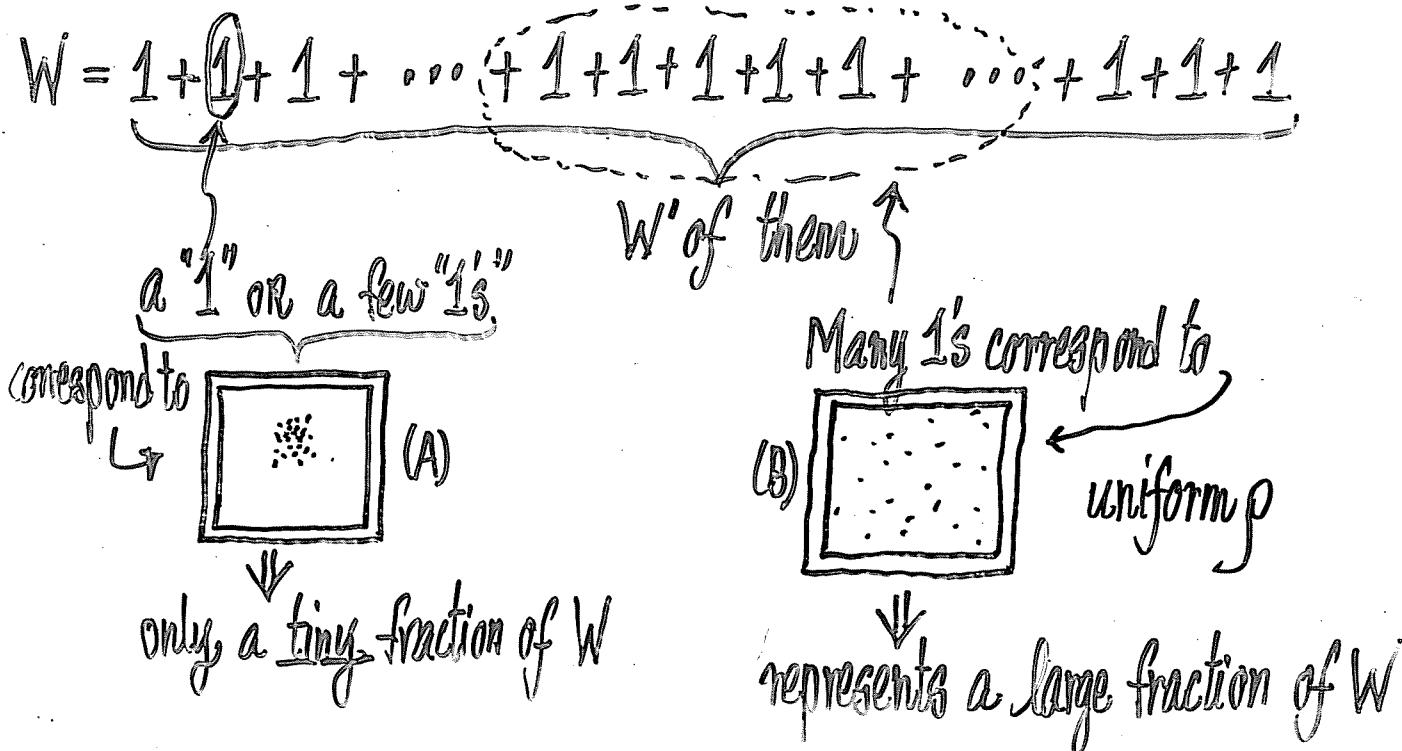 W = 1+1+1+ ... +1+1+1+1+1+ ... +1+1+1
W of them
a "1" or a few "1's"
correspond to
(A)
only a tiny fraction of W
Many 1's correspond to
(B)
uniform ρ
represents a large fraction of W